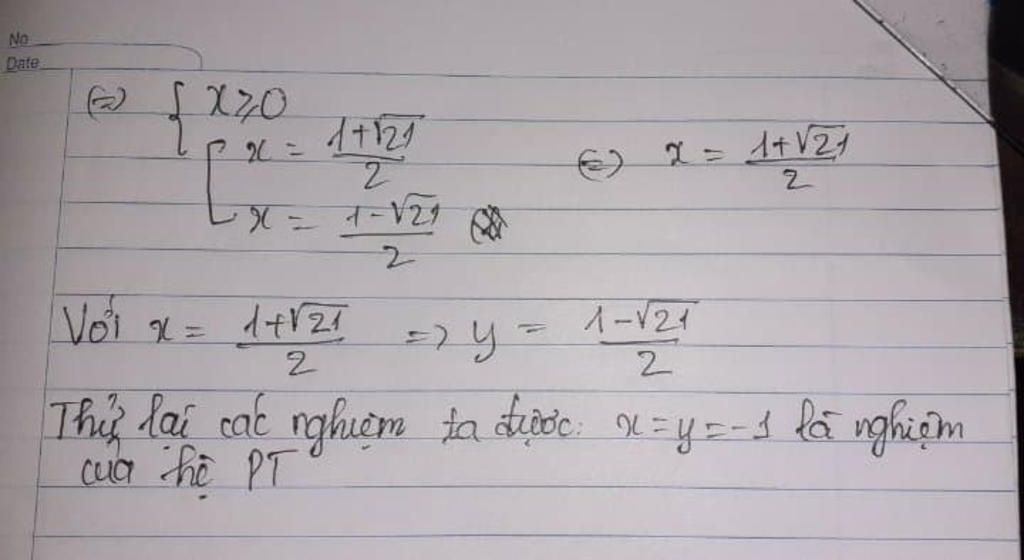 No
Date
(=) { x ≥ 0
[ x = (1+√21)/2 (=) x = (1+√21)/2
x = (1-√21)/2
Với x = (1+√21)/2 => y = (1-√21)/2
Thử lại các nghiệm ta được: x=y=-1 là nghiệm
của hệ PT